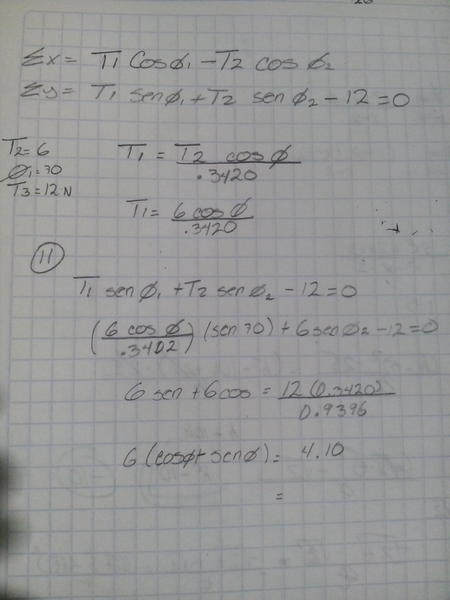 Σx = T1 Cosϕ1 - T2 cos ϕ2
Σy = T1 senϕ1 + T2 sen ϕ2 - 12 = 0
T2 = 6
ϕ1 = 70
T3 = 12 N
T1 = T2 cos ϕ / .3420
T1 = 6 cos ϕ / .3420
11
T1 sen ϕ1 + T2 sen ϕ2 - 12 = 0
(6 cos ϕ / .3402) (sen 70) + 6 sen ϕ2 - 12 = 0
6 sen + 6 cos = 12 (0.3420) / 0.9396
6 (cosϕ + senϕ) = 4.10
=